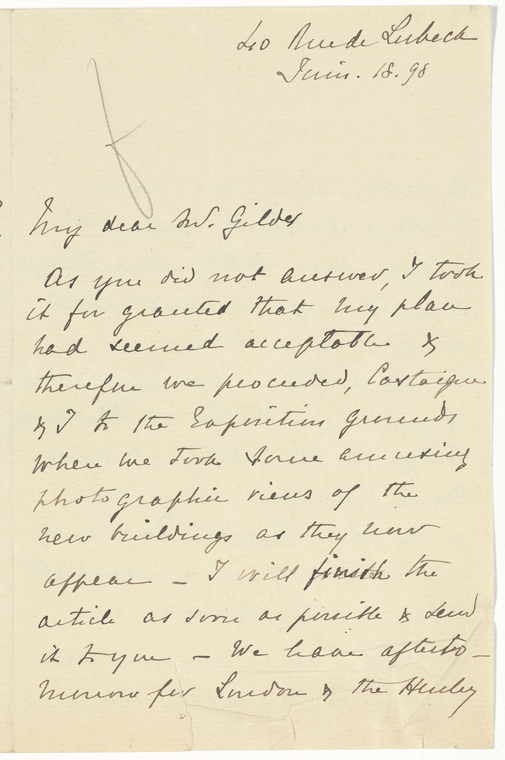 40 Rue de Lubeck
Juin. 18. 98
My dear Mr. Gilder
As you did not answer, I took
it for granted that my plan
had seemed acceptable &
therefore we proceeded, Castaigne
& I to the Exposition grounds
where we took some amusing
photographic views of the
new buildings as they now
appear — I will finish the
article as soon as possible & send
it to you — We leave after to-
morrow for London & the Henley